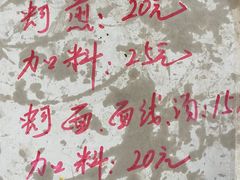 蚵煎:20元
加料:25元
蚵面.面线.汤:15
加料:20元